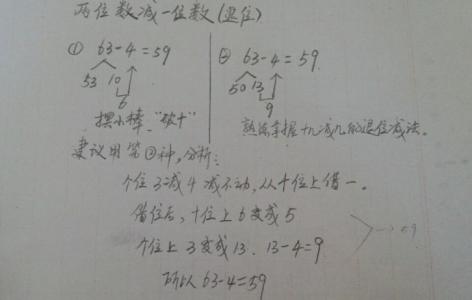 两位数减一位数(退位)
① 63-4=59
53 10
6
摆小棒、"破十"
② 63-4=59.
50 13
9
熟练掌握十几减几的退位减法。
建议用第②种,分析:
个位3减4减不动,从十位上借一。
借位后,十位上6变成5
个位上3变成13. 13-4=9
所以63-4=59